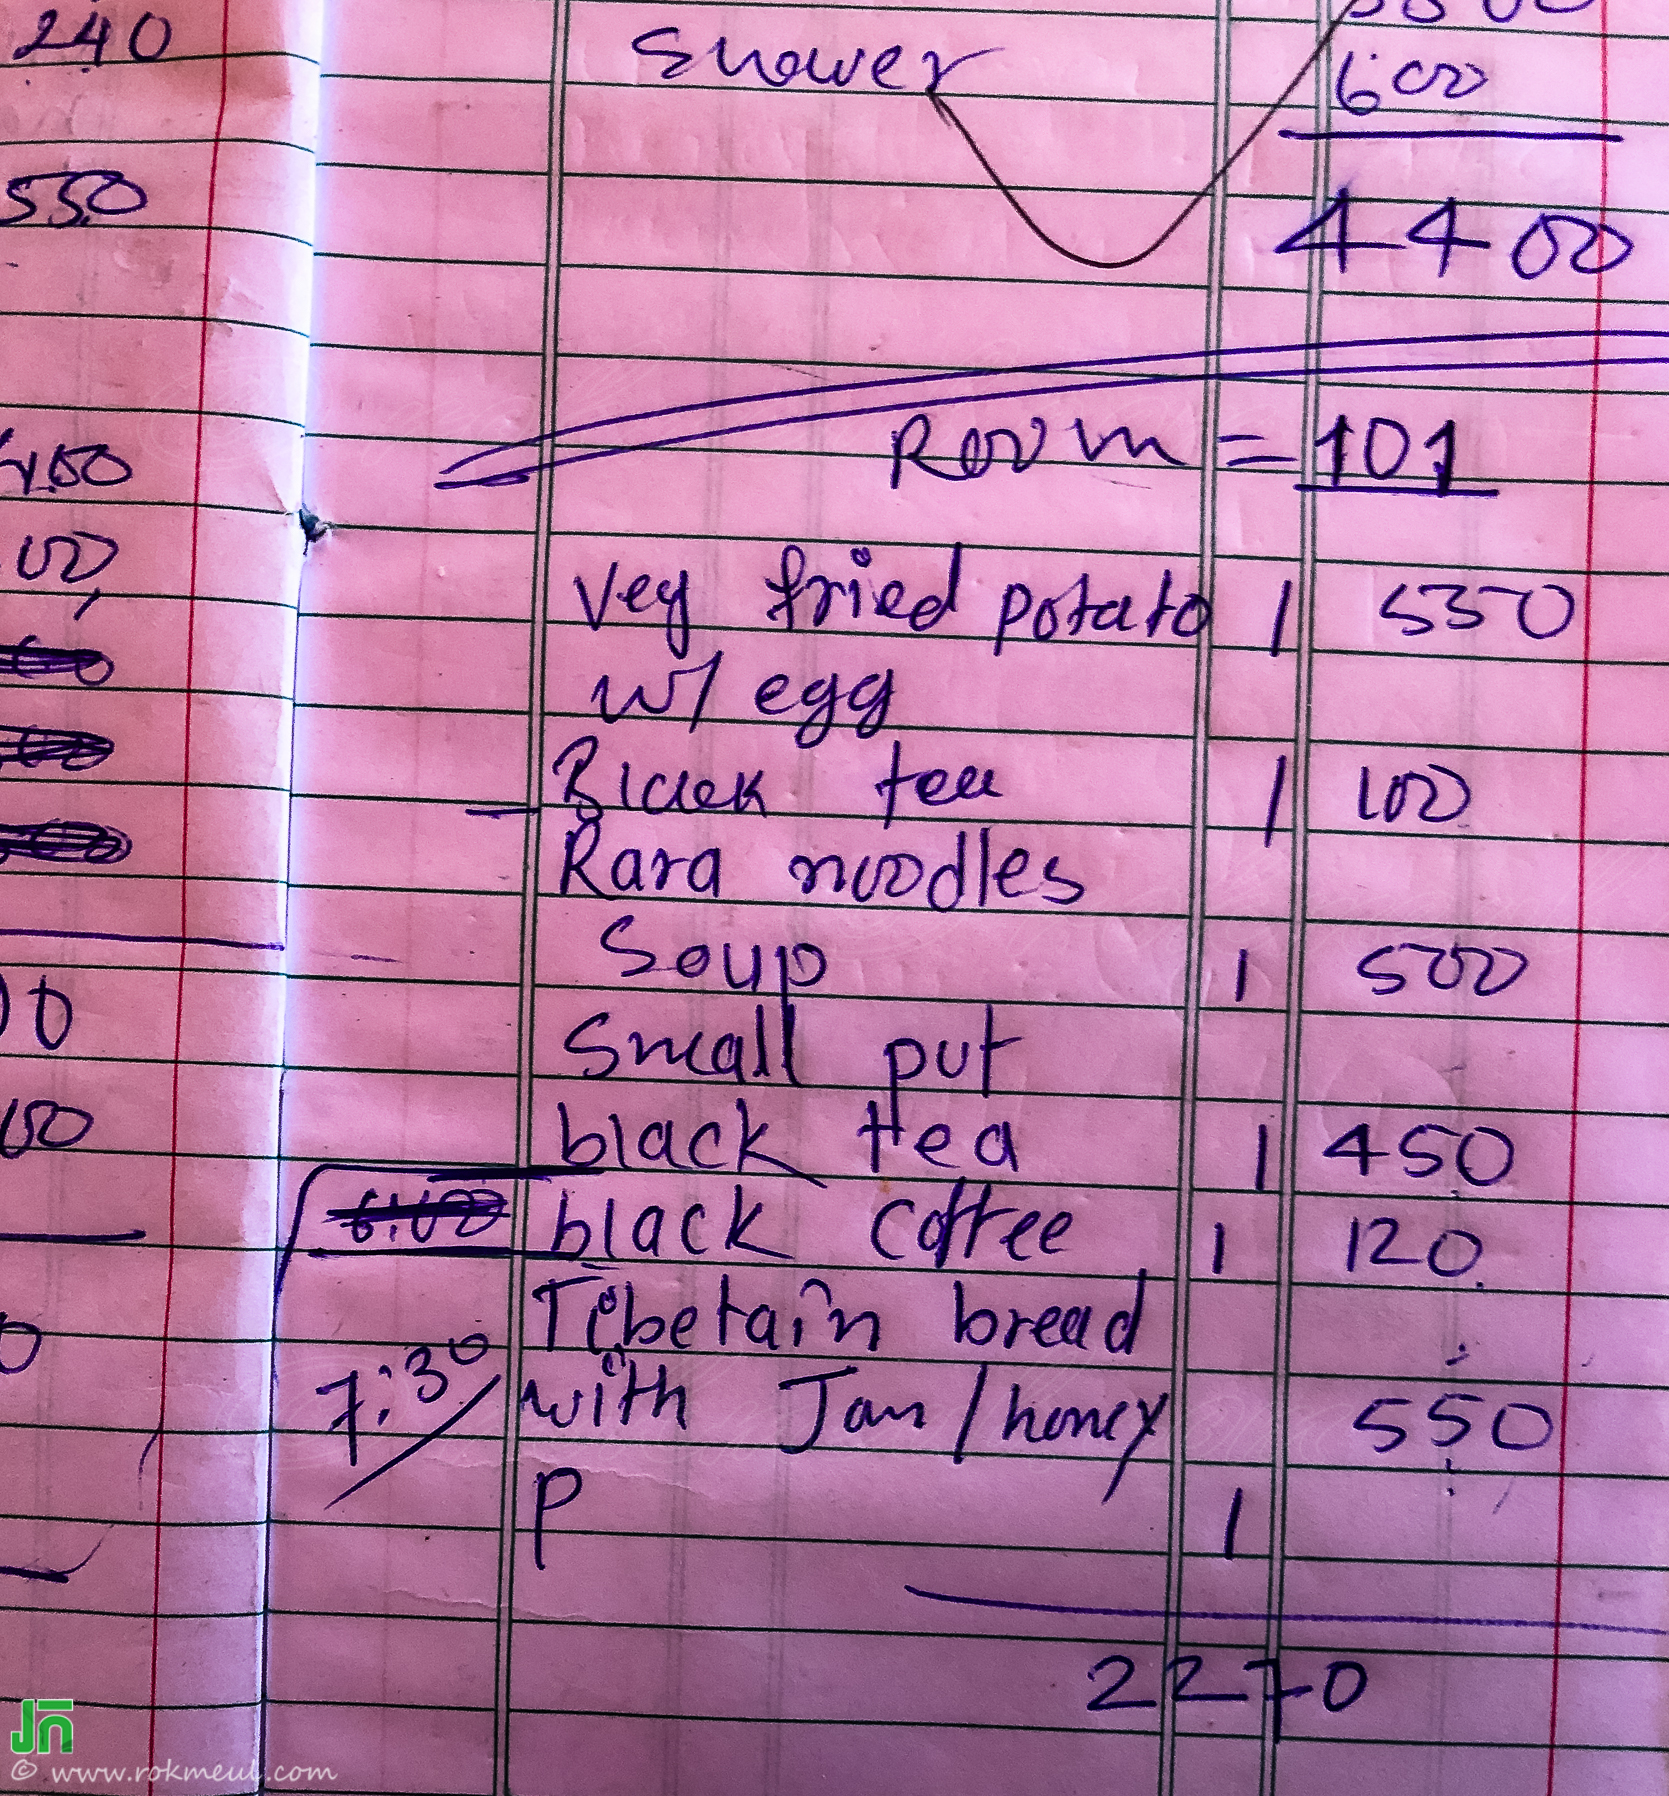 240
550
00
00
50
0
Shower
600
4400
Room = 101
Veg fried potato 1 550
w/ egg
Black tea 1 100
Rara noodles
Soup 1 500
Small put
black tea 1 450
black coffee 1 120
Tibetain bread
7:30 with Jam/honey 550
P 1
2270
Jn
© www.rokmeul.com